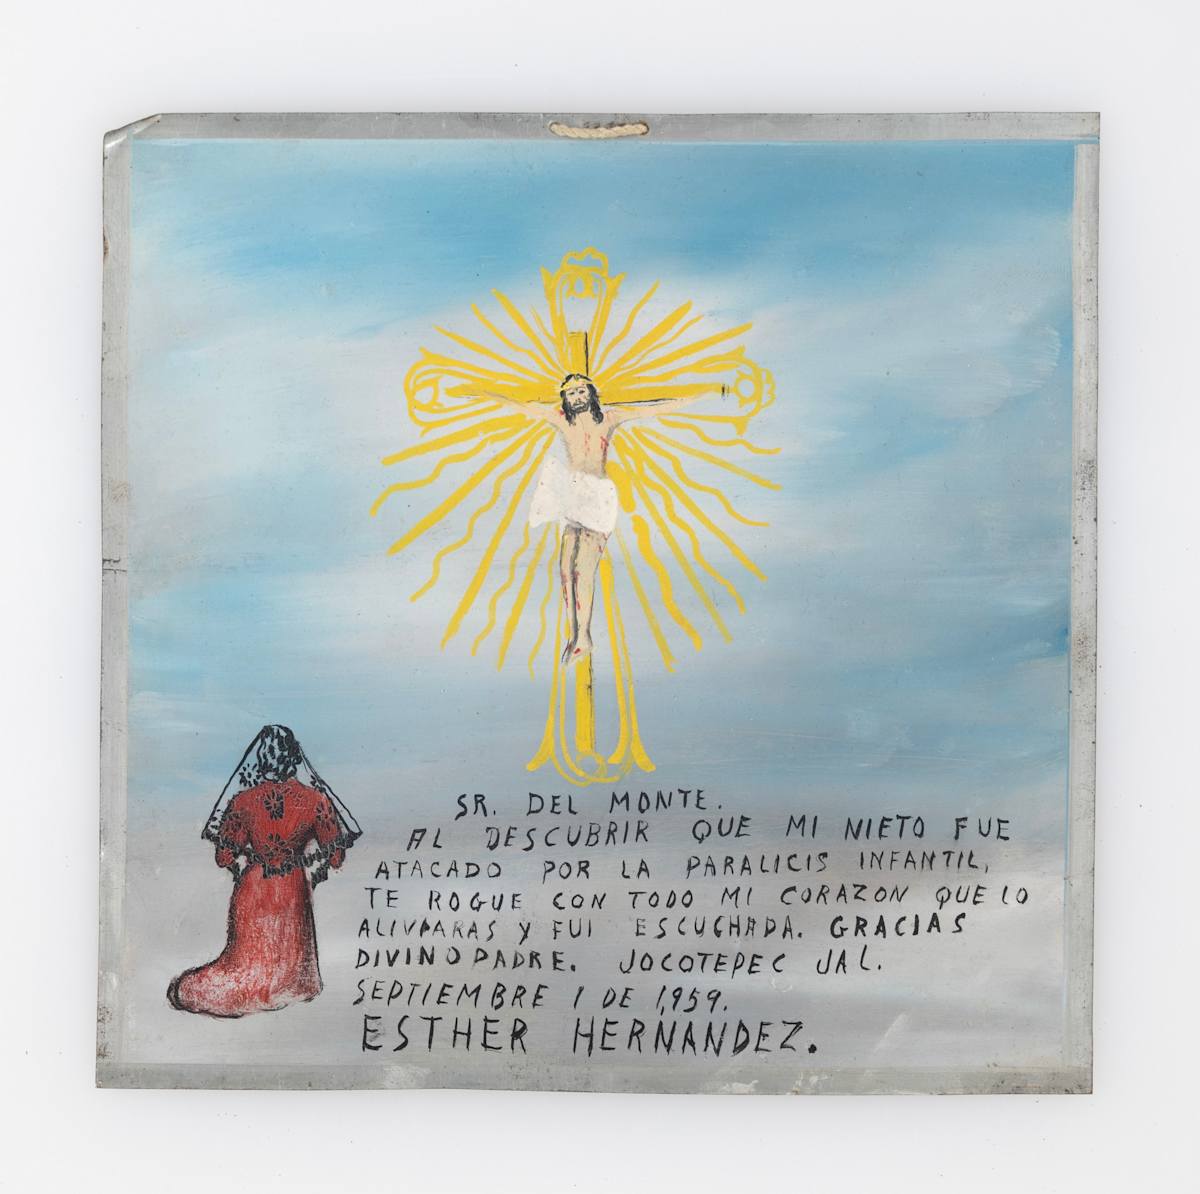 SR. DEL MONTE.
AL DESCUBRIR QUE MI NIETO FUE
ATACADO POR LA PARALICIS INFANTIL,
TE ROGUE CON TODO MI CORAZON QUE LO
ALIVPARAS Y FUI ESCUCHADA. GRACIAS
DIVINO PADRE. JOCOTEPEC JAL.
SEPTIEMBRE 1 DE 1,959.
ESTHER HERNANDEZ.